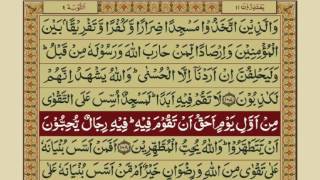 يعتذرون ١١ التوبة ٩
وَالَّذِيْنَ اتَّخَذُوْا مَسْجِدًا ضِرَارًا وَّكُفْرًا وَّتَفْرِيْقًا بَيْنَ
الْمُؤْمِنِيْنَ وَاِرْصَادًا لِّمَنْ حَارَبَ اللّٰهَ وَرَسُوْلَهٗ مِنْ قَبْلُ ؕ
وَلَيَحْلِفُنَّ اِنْ اَرَدْنَاۤ اِلَّا الْحُسْنٰى ؕ وَاللّٰهُ يَشْهَدُ اِنَّهُمْ
لَكٰذِبُوْنَ ﴿۱۰۷﴾ لَا تَقُمْ فِيْهِ اَبَدًا ؕ لَمَسْجِدٌ اُسِّسَ عَلَى التَّقْوٰى
مِنْ اَوَّلِ يَوْمٍ اَحَقُّ اَنْ تَقُوْمَ فِيْهِ ؕ فِيْهِ رِجَالٌ يُّحِبُّوْنَ
اَنْ يَّتَطَهَّرُوْا ؕ وَاللّٰهُ يُحِبُّ الْمُطَّهِّرِيْنَ ﴿۱۰۸﴾ اَفَمَنْ اَسَّسَ بُنْيَانَهٗ
عَلٰى تَقْوٰى مِنَ اللّٰهِ وَرِضْوَانٍ خَيْرٌ اَمْ مَّنْ اَسَّسَ بُنْيَانَهٗ عَلٰى